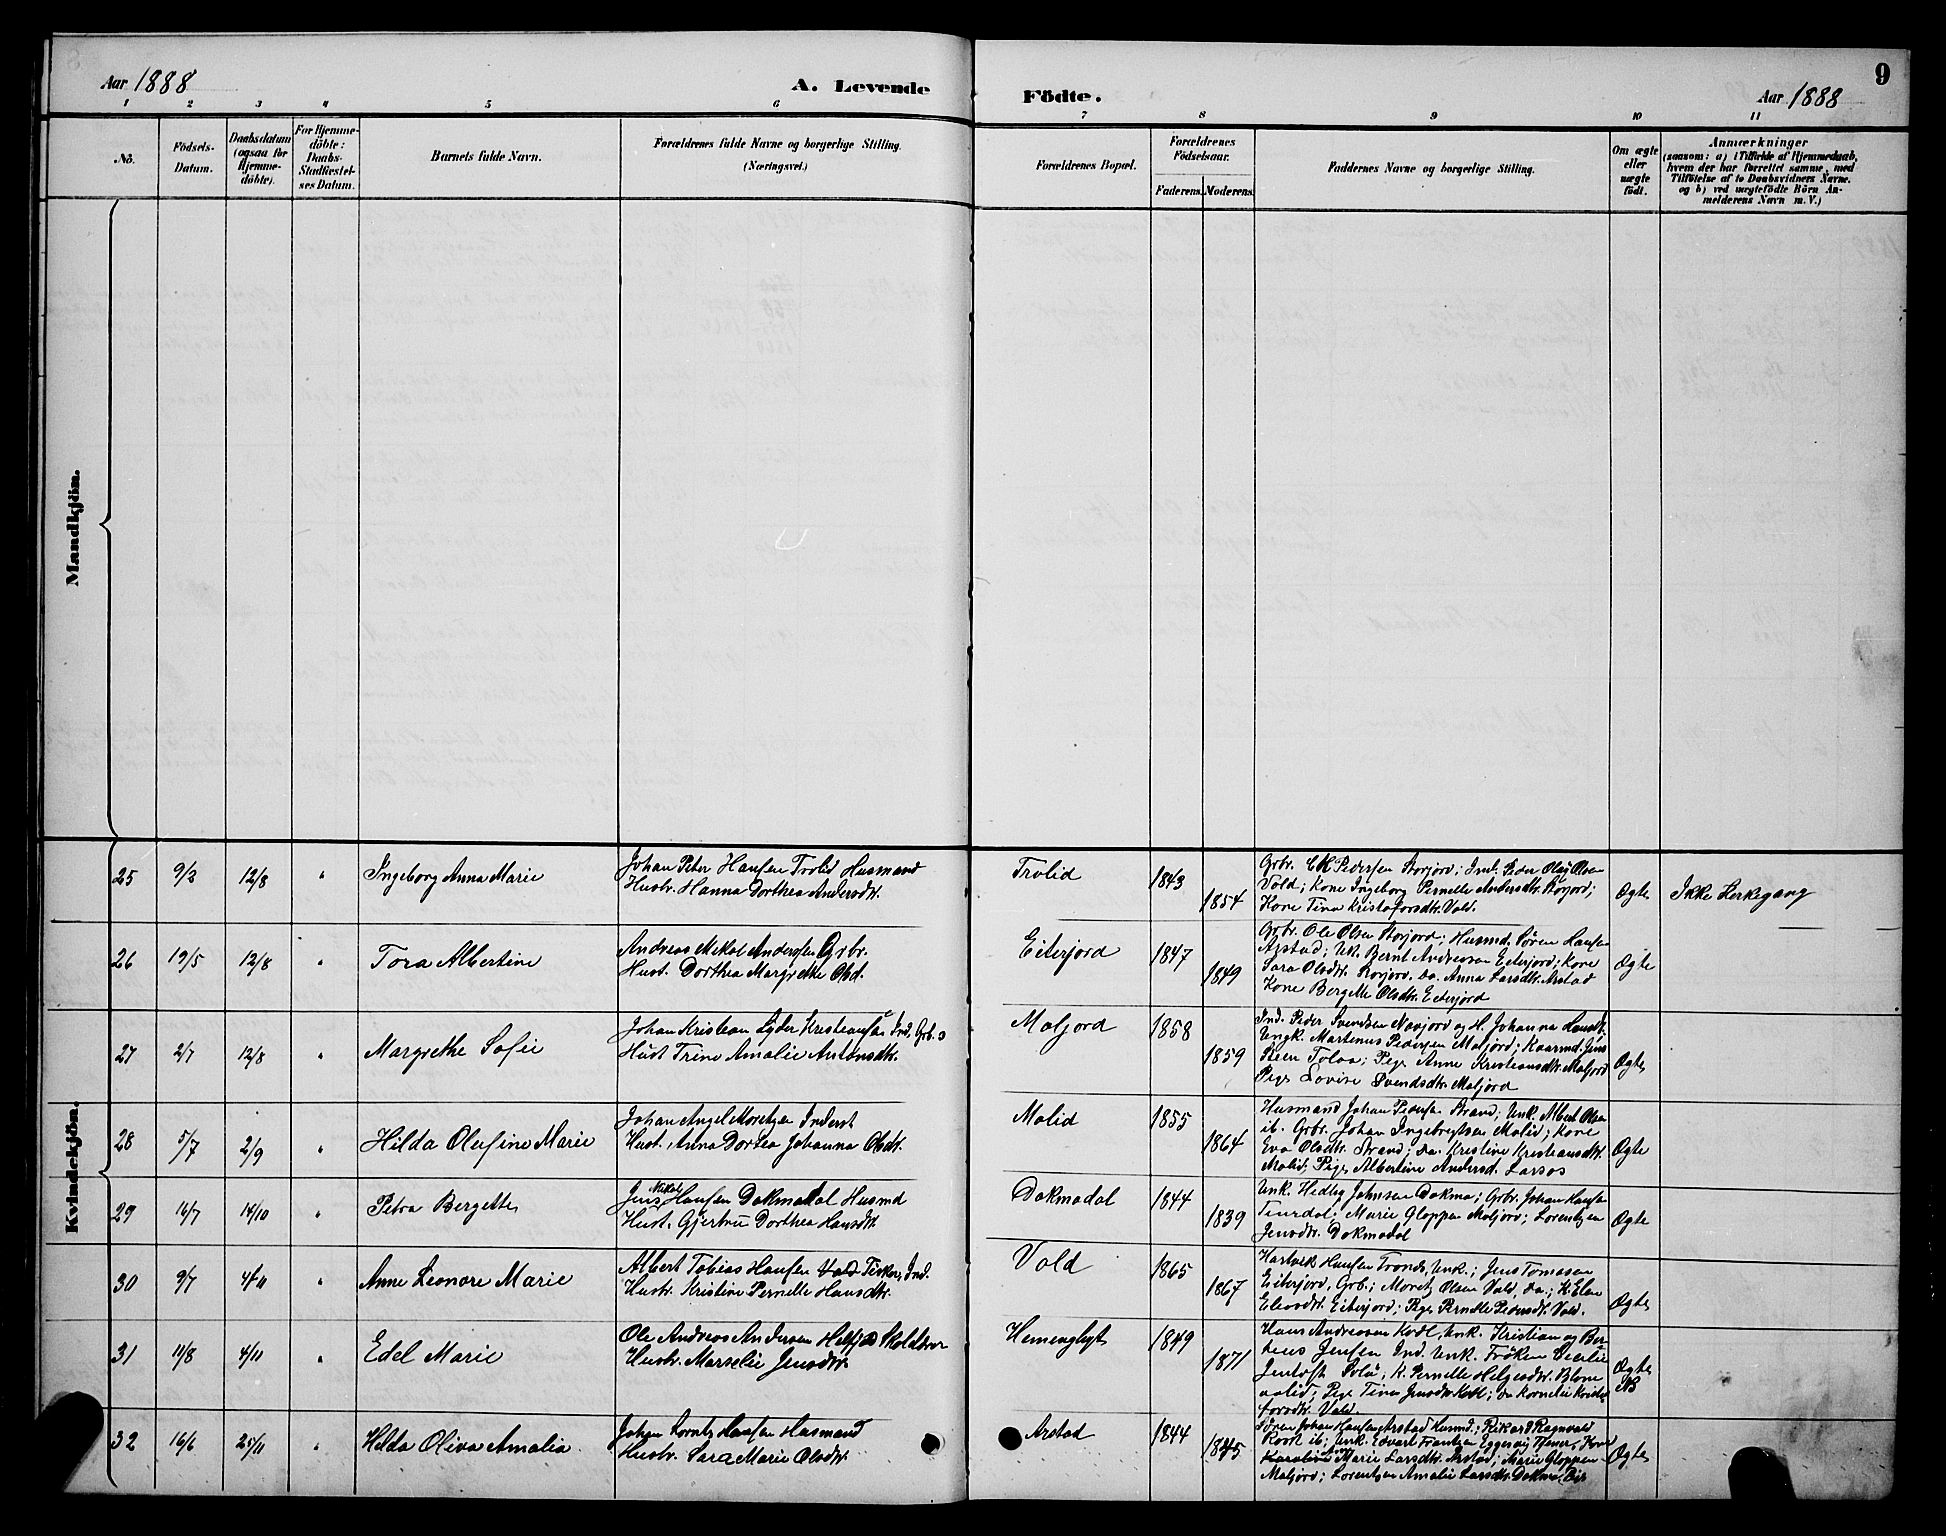 Aar 1888
A. Levende
Födte.
Aar 1888
9
1 2 3 4 5 6 7 8 9 10 11
No.
Födsels-
Datum.
Daabsdatum
(ogsaa for
Hjemme-
døbte).
For Hjemme-
døbte:
Daabs-
Stadfæstel-
ses Datum.
Barnets fulde Navn.
Forældrenes fulde Navne og borgerlige Stilling.
(Næringsvei.)
Forældrenes Bopæl.
Forældrenes
Födselsaar.
Faderens. Moderens.
Faddernes Navne og borgerlige Stilling.
Om ægte
eller
uægte
födt.
Anmærkninger
(saasom: a) i Tilfælde af Hjemmedaab,
hvem der har forrettet samme, med
Tilföielse af to Daabsvidners Navne.
og b) ved uægtefödte Börn An-
melderens Navn m.V.)
Mandkjön.
Kvindekjön.
25 9/2 12/8 " Ingeborg Anna Marie
Johan Peter Hansen Trolid Husmand
Hustr. Hanna Dorthea Andersdtr.
Trolid 1843 1854
Grbr. Pedersen Storjord; Ind. Peder Olaj Olsen
Vold; Kone Ingeborg Pernelle Andersdtr. Storjord;
Kone Tina Kristofersdtr. Vold.
Ægte Ikke Kerkegang
26 19/5 12/8 " Tora Albertine
Andreas Mekal Andersen Grbr.
Hust. Dorthea Margrethe Olsd.
Eiterjord 1847 1849
Grbr. Ole Olsen Storjord; Husmd. Søren Hansen
Arstad; Uk. Bernt Andreasen Eiterjord; Kone
Sara Olsdtr. Storjord. Do. Anna Larsdtr. Arstad
Kone Bergette Olsdtr. Eiterjord
Ægte
27 2/7 12/8 " Margrethe Sofie
Johan Kristian Lyder Kristiansen Ind. Grb. s
Hust Trine Amalie Antonsdtr.
Moljord 1858 1859
Ind. Peder Svendsen Movjord og H. Johanna Hansdt.
Ungk. Martenus Pedersen Moljord; Kaarmd. Jens
Steen Tolaa; Pige Anne Kristiansdtr. Moljord
Pige Lovise Svendsdtr. Moljord
Ægte
28 5/7 2/9 " Hilda Olufine Marie
Johan Angel Moritsen Inderst
Hust. Anna Dortea Johanna Olsdtr.
Molid 1855 1864
Husmand Johan Pedersen Strand; Unk. Albert Olsen
ib. Grbr. Johan Ingebregtsen Molid; Kone
Eva Olsdtr. Strand; Do. Kristine Kristiansdtr.
Molid; Pige Albertine Andersd. Larsos
Ægte
29 14/7 14/10 " Petra Bergette
Jens Mikal Hansen Dokmodal Husmd
Hust. Gjertru Dorthea Hansdtr
Dokmodal 1844 1839
Unk. Hedley Johnsen Dokmo; Grbr. Johan Hansen
Marie Gloppen Moljord; Lorentzen
Jensdtr. Dokmodal
Ægte
30 9/7 4/11 " Anne Leonore Marie
Albert Tobias Hansen Vold Fisker, Ind.
Hustr. Kristine Pernelle Hansdtr.
Vold 1865 1867
Hartvik Hansen Trones, Unk.; Jens Tomasen
Eiterjord, Grb.; Moretz Olsen Vold, Do.; K. Elen
Eleasdtr. Eiterjord; Pige Pernelle Pedersdt. Vold.
Ægte
31 11/8 4/11 " Edel Marie
Ole Andreas Andersen
Hustr. Marselie Jensdtr.
Hemenglyt 1849 1871
Hans Andreasen Kodl, Unk. Kristian og Ber-
teus Jensen Ind. Unk. Frøken Secilie
Jentoft Solø; K. Pernelle Helgesdtr. Blom
valid; Pige Tina Jensdtr. Kodl; do Kornelie Kristo-
forsdtr. Vald.
Ægte
NB
32 16/6 25/11 " Hilda Oliva Amalia
Johan Lornts Hansen Husmand
Hustr. Sara Marie Olsdtr.
Arstad 1844 1845
Søren Johan Hansen Arstad Husmd.; Rikard Ragnvald
Kodl ib; Unk. Edvart Frantsen Eggesvig
Marie Larsdtr. Arstad; Marie Gloppen
Moljord; Lorentzen Amalie Larsdtr. Dokmo,
Ægte